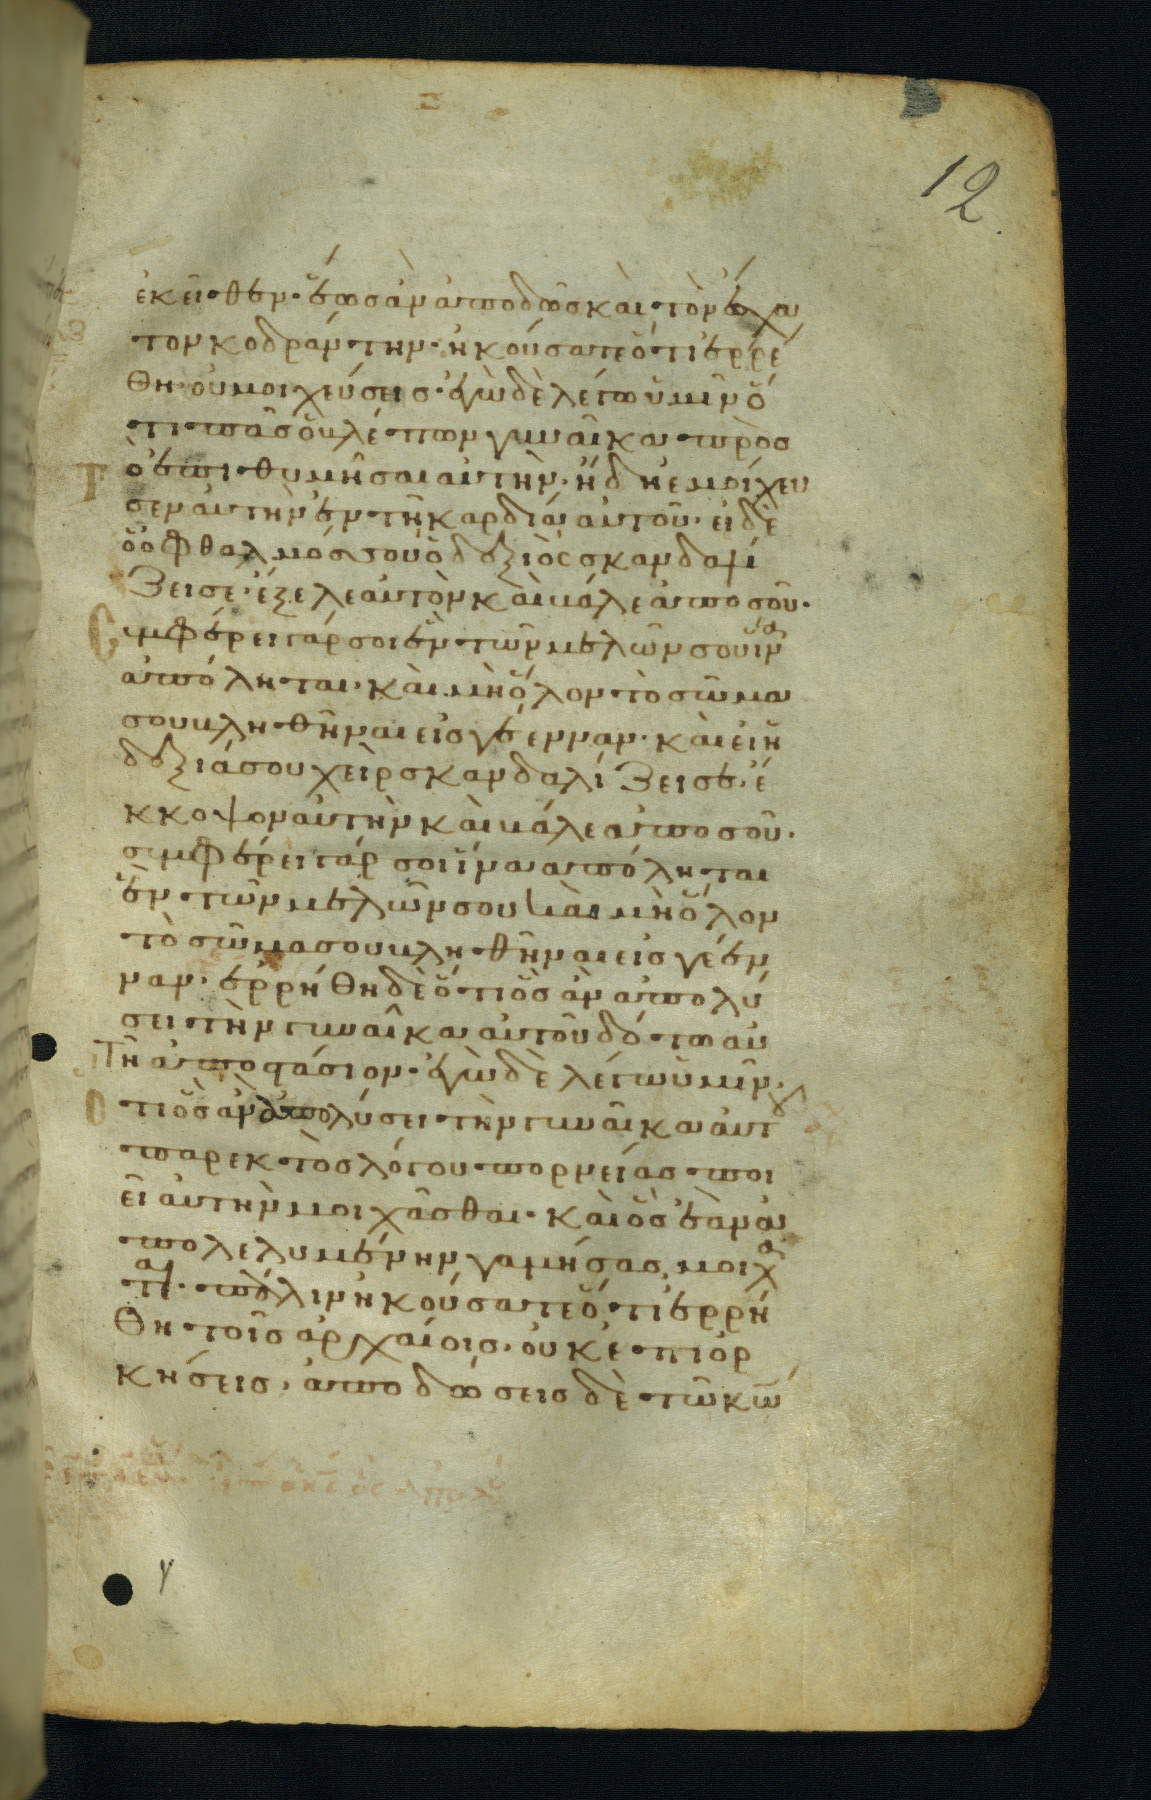 12
ἐκεῖθεν· ἕως ἀν ἀποδῶς καὶ τὸν ἔσχα
τον κοδράντην· ἠκούσατε ὅτι ἐρρέ
θη· οὐ μοιχεύσεις· ἐγὼ δὲ λέγω ὑμῖν ὅ
τι πᾶς ὁ βλέπων γυναῖκα πρὸς
τὸ ἐπιθυμῆσαι αὐτὴν· ἤδη ἐμοίχευ
σεν αὐτὴν ἐν τῆ καρδία αὐτοῦ· εἰ δὲ
ὁ ὀφθαλμός σου ὁ δεξιὸς σκανδαλί
ζει σε· ἔξελε αὐτὸν καὶ βάλε ἀπο σοῦ·
Συμφέρει γάρ σοι ἓν τῶν μελῶν σου ἵνα
ἀπόληται· καὶ μὴ ὅλον τὸ σῶμα
σου βληθῆναι εἰς γέενναν· καὶ εἰ ἡ
δεξιά σου χεὶρ σκανδαλίζει σε· ἔ
κκοψον αὐτὴν καὶ βάλε ἀπο σοῦ·
συμφέρει γάρ σοι ἵνα ἀπόληται
ἓν τῶν μελῶν σου καὶ μὴ ὅλον
τὸ σῶμα σου βληθῆναι εἰς γέεν
ναν· ἐρρήθη δὲ ὅτι ὃς ἀν ἀπολύ
σει τὴν γυναῖκα αὐτοῦ δότω αὐ
τῆ ἀποστάσιον· ἐγὼ δὲ λέγω ὑμῖν·
ὅτι ὃς ἀν ἀπολύσει τὴν γυναῖκα αὐτοῦ
παρεκτὸς λόγου πορνείας ποι
εῖ αὐτὴν μοιχᾶσθαι· καὶ ὃς ἐὰν ἀ
πολελυμένην γαμήσας, μοιχᾶ
ται· πάλιν ἠκούσατε ὅτι ἐρρή
θη τοῖς ἀρχαίοις· οὐκ ἐπιορ
κήσεις, ἀποδώσεις δὲ τῶ κῶ
γ